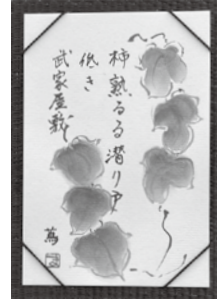 柿熟るる潜り戸
低き
武家屋敷
蔦